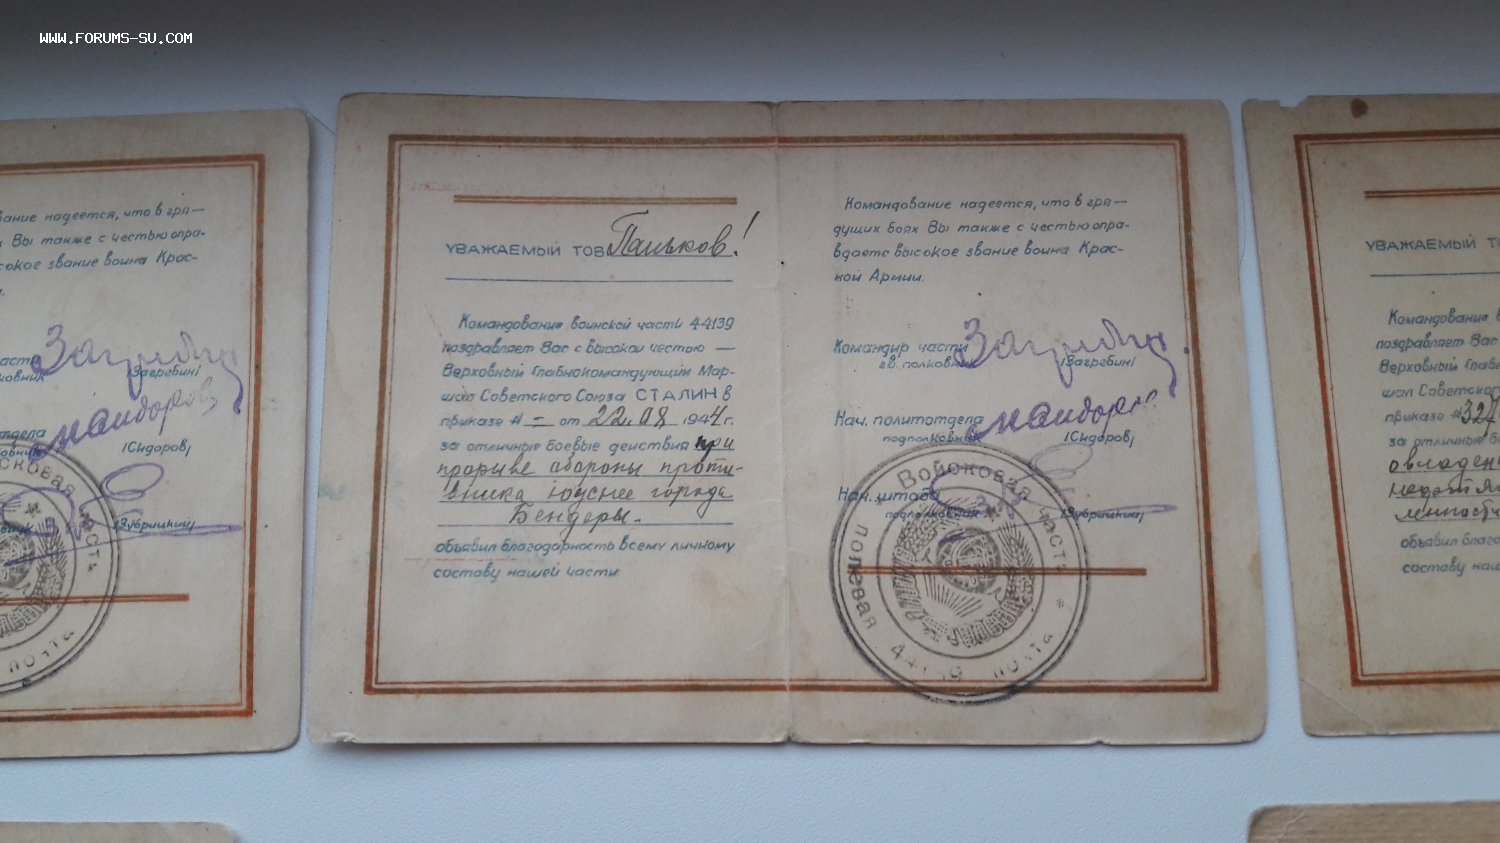 WWW.FORUMS-SU.COM
вание надеется, что в гря—
Вы также с честью опра-
сокое звание воина Крас-
части
ковник
/Загребин/
отдела
/Сидоров/
/Зубрицкий/
ковая часть
почта
УВАЖАЕМЫЙ ТОВ Паньков!
Командование воинской части 44139
поздравляет Вас с высокой честью —
Верховный Главнокомандующий Мар-
шал Советского Союза СТАЛИН в
приказе № — от 22.08 1944 г.
за отличные боевые действия при
прорыве обороны проти-
вника южнее города
Бендеры.
объявил благодарность всему личному
составу нашей части.
Командование надеется, что в гря—
дущих боях Вы также с честью опра-
вдаете высокое звание воина Крас-
ной Армии.
Командир части
гв. полковник
/Загребин/
Нач. политотдела
подполковник
/Сидоров/
Нач. штаба
подполковник
/Зубрицкий/
Войсковая часть * полевая почта
УВАЖАЕМЫЙ ТО
Командование в
поздравляет Вас
Верховный Глав
шал Советского
приказе №
за отличные б
овладен
объявил благо
составу наш